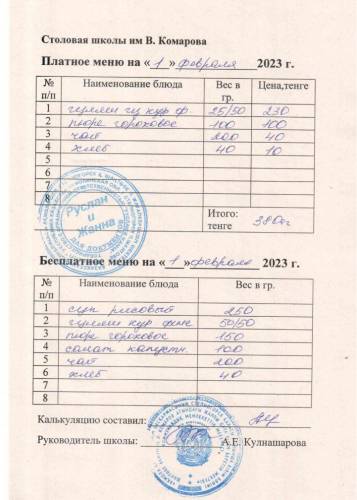 Столовая школы им В. Комарова
Платное меню на «1» февраля 2023 г.
№ п/п Наименование блюда Вес в гр. Цена,тенге
1 кур ф. 25/50 230
2 пюре гороховое 100 100
3 чай 200 40
4 хлеб 40 10
5
6
7
8
Итого: тенге 380тг
Руслан и Жанна
ДЛЯ ДОКУМЕНТОВ
Бесплатное меню на «1» февраля 2023 г.
№ п/п Наименование блюда Вес в гр.
1 суп рисовый 250
2 кур филе 50/50
3 пюре гороховое 150
4 салат капустн. 100
5 чай 200
6 хлеб 40
7
8
Калькуляцию составил:
Руководитель школы: А.Е. Кулнашарова